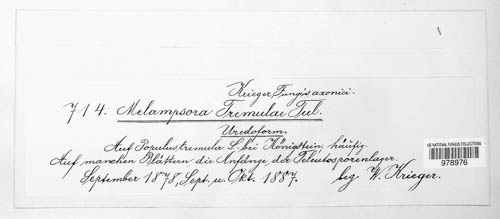 Krieger, Fungi saxonici.
714. Melampsora Tremulae Tul.
Uredoform.
Auf Populus tremula L. bei Königstein häufig.
Auf manchen Blättern die Anfänge der Teleutosporenlager.
September 1878, Sept. u. Okt. 1887. leg. W. Krieger.
US NATIONAL FUNGUS COLLECTIONS
978976